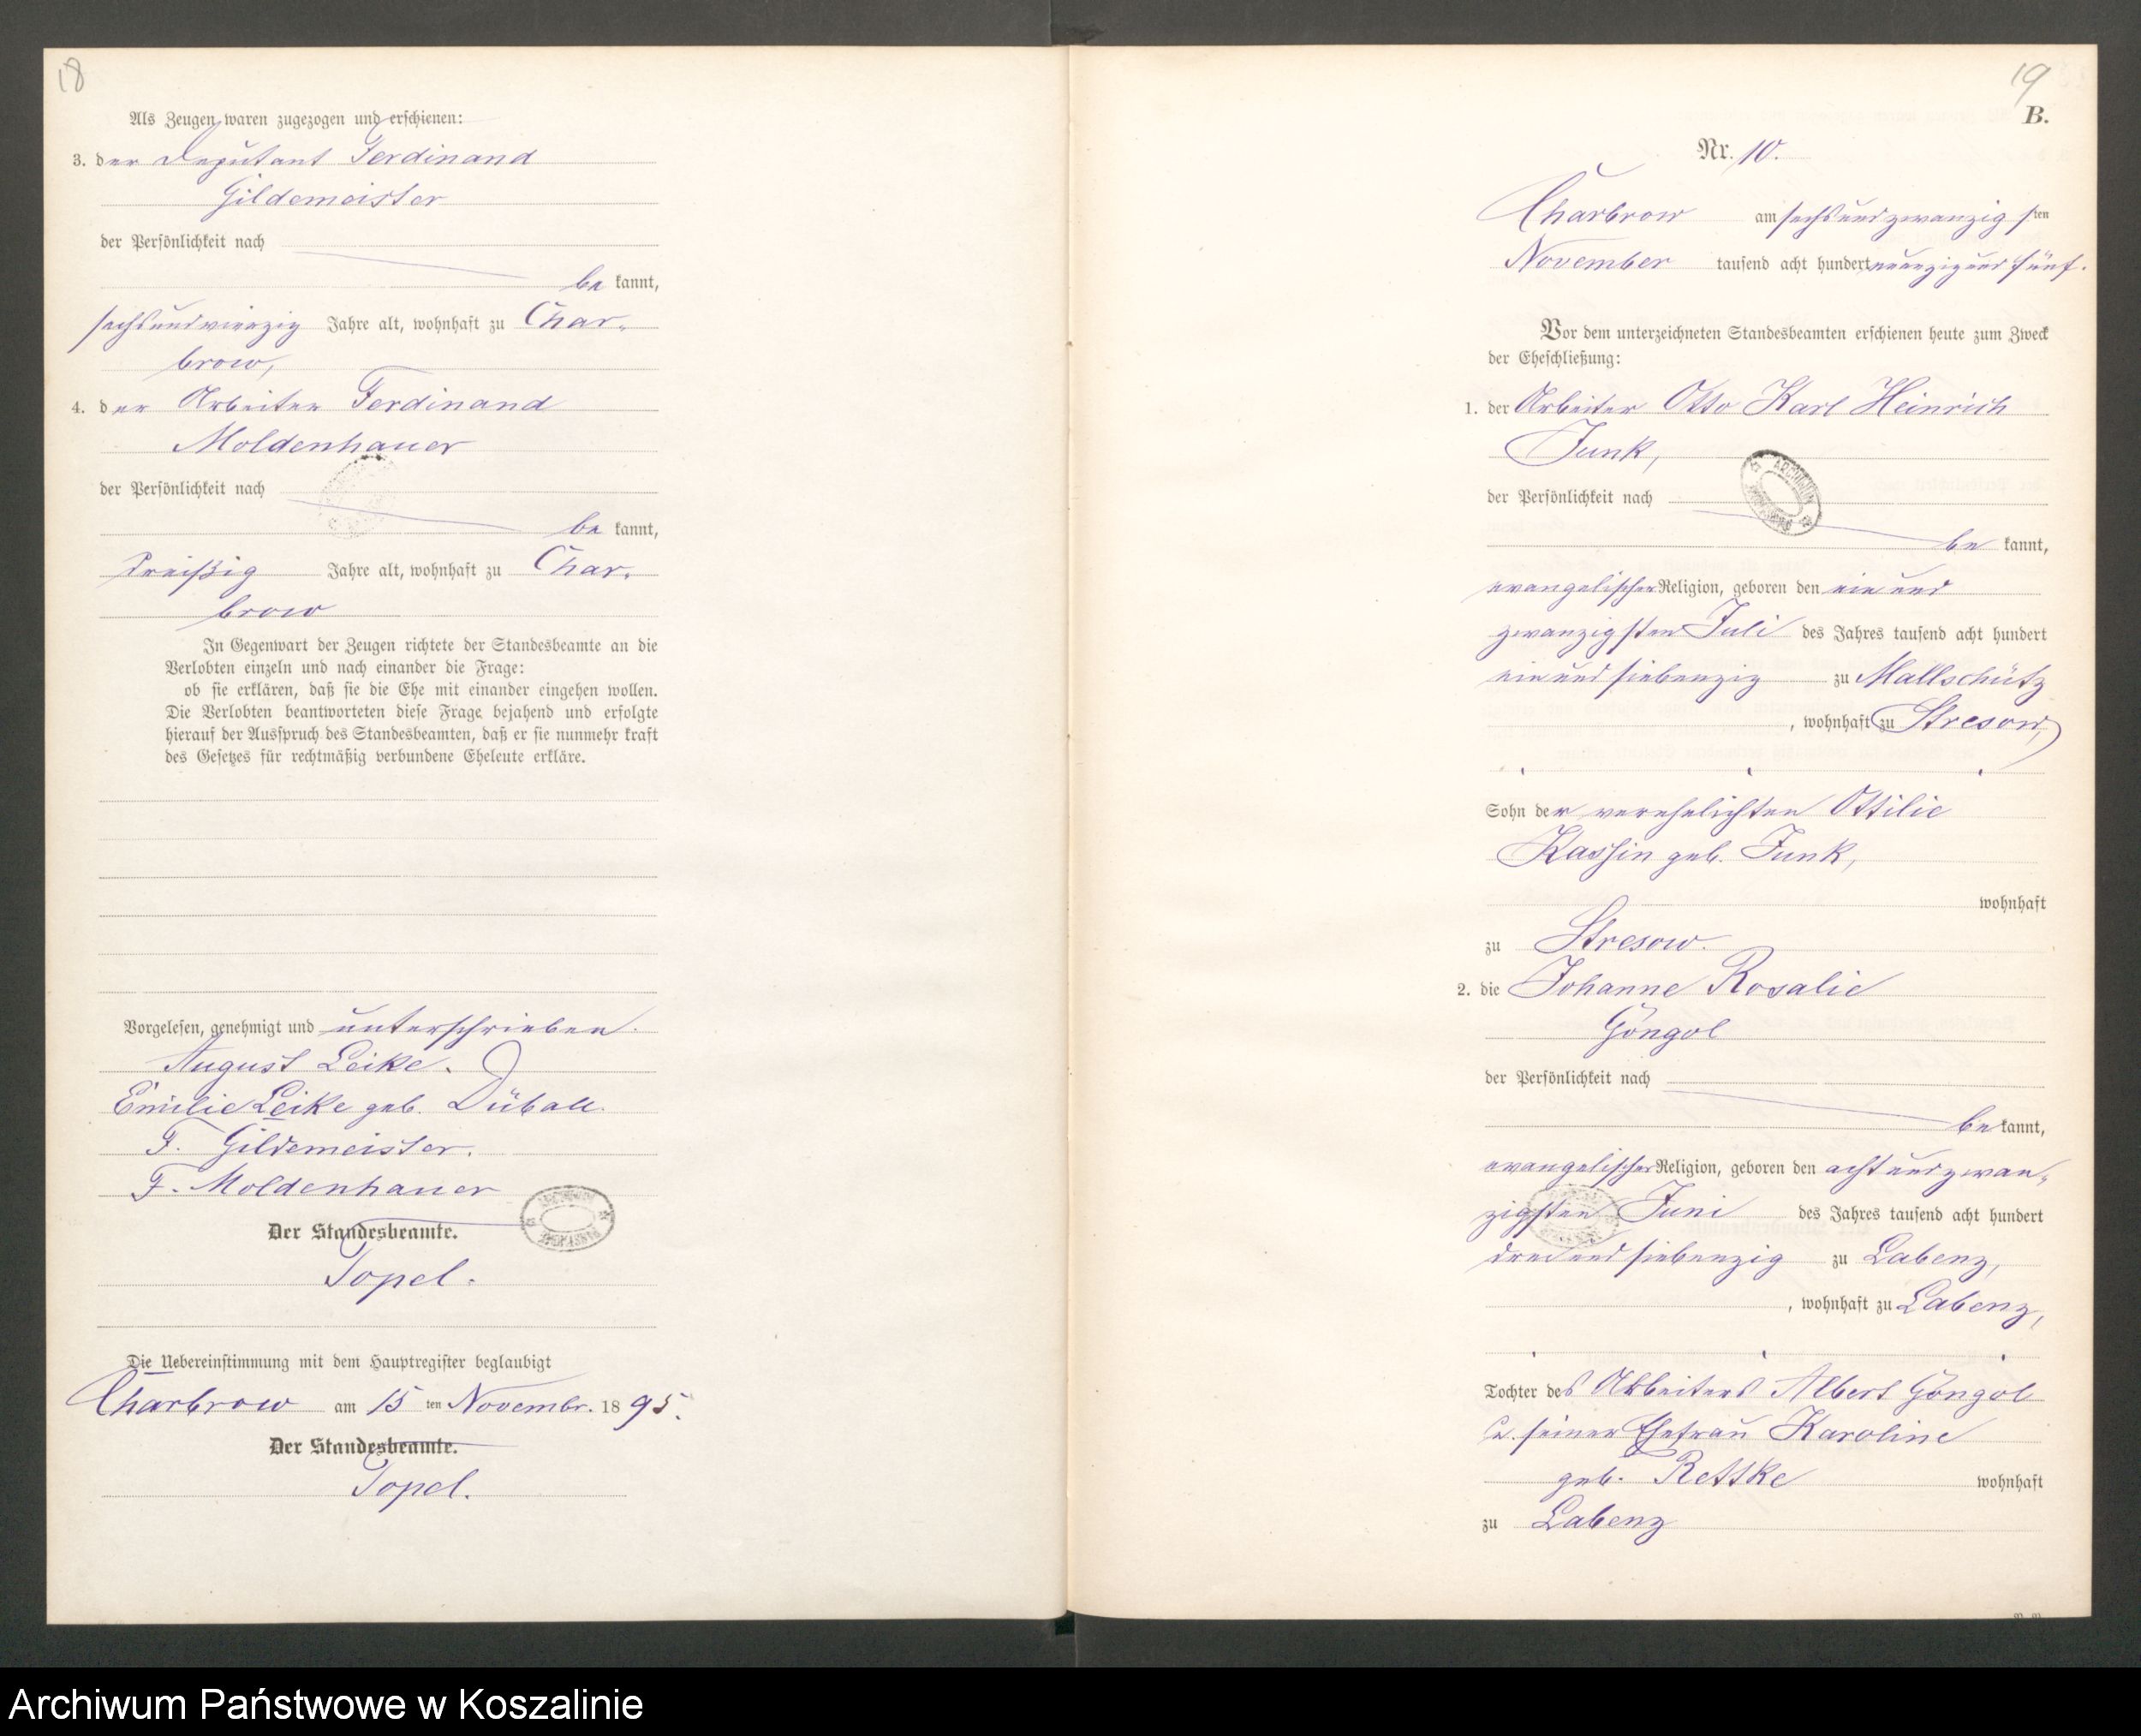 18
Als Zeugen waren zugezogen und erschienen:
3. der Deputant Ferdinand
Gildemeister
der Persönlichkeit nach
be kannt,
sechsundvierzig Jahre alt, wohnhaft zu Char-
brow,
4. der Arbeiter Ferdinand
Moldenhauer
der Persönlichkeit nach
be kannt,
dreißig Jahre alt, wohnhaft zu Char-
brow
In Gegenwart der Zeugen richtete der Standesbeamte an die
Verlobten einzeln und nach einander die Frage:
ob sie erklären, daß sie die Ehe mit einander eingehen wollen.
Die Verlobten beantworteten diese Frage bejahend und erfolgte
hierauf der Ausspruch des Standesbeamten, daß er sie nunmehr kraft
des Gesetzes für rechtmäßig verbundene Eheleute erkläre.
Vorgelesen, genehmigt und unterschrieben.
August Leike.
Emilie Leike geb. Düball.
F. Gildemeister.
F. Moldenhauer
Der Standesbeamte.
Topel.
Die Uebereinstimmung mit dem Hauptregister beglaubigt
Charbrow am 15 ten Novembr. 18 95.
Der Standesbeamte.
Topel.
19
B.
Nr. 10.
Charbrow am sechsundzwanzigsten
November tausend acht hundert neunzig und fünf.
Vor dem unterzeichneten Standesbeamten erschienen heute zum Zweck
der Eheschließung:
1. der Arbeiter Otto Karl Heinrich
Junk,
der Persönlichkeit nach
ARCHIWUM
be kannt,
evangelischer Religion, geboren den ein und
zwanzigsten Juli des Jahres tausend acht hundert
ein und siebenzig zu Mallschütz
, wohnhaft zu Stresow,
Sohn der verehelichten Ottilie
Kassin geb. Junk,
wohnhaft
zu Stresow.
2. die Johanne Rosalie
Göngol
der Persönlichkeit nach
be kannt,
evangelischer Religion, geboren den acht und zwan-
zigsten Juni des Jahres tausend acht hundert
drei und siebenzig zu Labenz,
, wohnhaft zu Labenz,
Tochter des Arbeiters Albert Göngol
u. seiner Ehefrau Karoline
geb. Rettke wohnhaft
zu Labenz
Archiwum Państwowe w Koszalinie